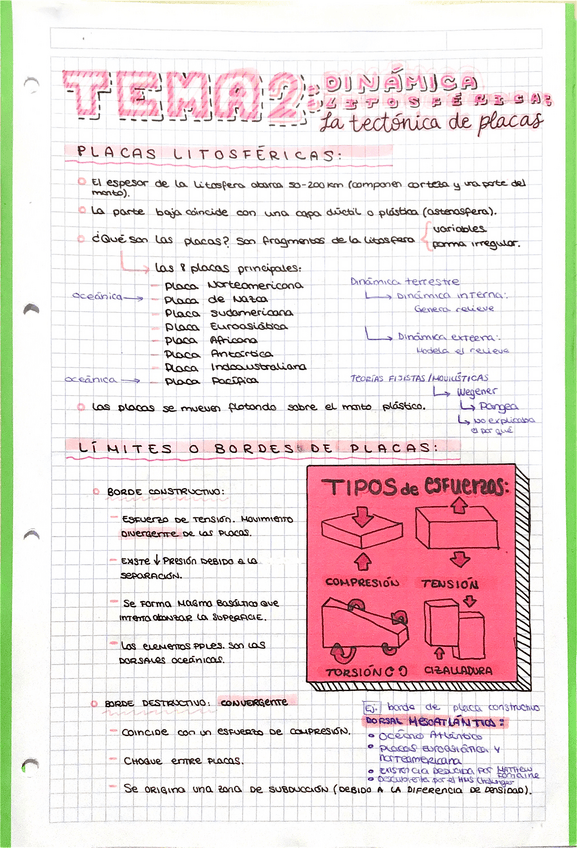 TEMA 2:
DINÁMICA
LITOSFÉRICA:
La tectónica de placas
PLACAS LITOSFÉRICAS:
El espesor de la litosfera abarca 50-200 km (componen corteza y una parte del
manto).
La parte baja coincide con una capa dúctil o plástica (astenosfera).
¿Qué son las placas? Son fragmentos de la litosfera { variables
forma irregular.
Las 8 placas principales:
- Placa Norteamericana
oceánica → - Placa de Nazca
- Placa Sudamericana
- Placa Euroasiática
- Placa Africana
- Placa Antártica
- Placa Indoaustraliana
oceánica → - Placa Pacífica
Dinámica terrestre
Dinámica interna:
Genera relieve
Dinámica externa:
Modela el relieve
TEORÍAS FIJISTAS/MOVILISTICAS
Wegener
Pangea
No explicaba
el por qué
Las placas se mueven flotando sobre el manto plástico.
LÍMITES O BORDES DE PLACAS:
BORDE CONSTRUCTIVO:
- ESFUERZO DE TENSIÓN. MOVIMIENTO
DIVERGENTE DE LAS PLACAS.
- EXISTE ↓ PRESIÓN DEBIDO A LA
SEPARACIÓN.
- SE FORMA MAGMA BASÁLTICO QUE
INTENTA ALCANZAR LA SUPERFICIE.
- LOS ELEMENTOS PPLES. SON LAS
DORSALES OCEÁNICAS.
TIPOS de esfuerzos:
COMPRESIÓN
TENSIÓN
TORSIÓN
CIZALLADURA
BORDE DESTRUCTIVO: CONVERGENTE
- COINCIDE CON UN ESFUERZO DE COMPRESIÓN.
- CHOQUE ENTRE PLACAS.
- SE ORIGINA UNA ZONA DE SUBDUCCIÓN (DEBIDO A LA DIFERENCIA DE DENSIDAD).
Ej. borde de placa constructivo
DORSAL MESOATLÁNTICA:
Océano Atlántico
Placas euroasiática y
norteamericana
EXISTENCIA DEDUCIDA POR MATTHEW
FONTAINE
Descubierta por el HMS Challenger